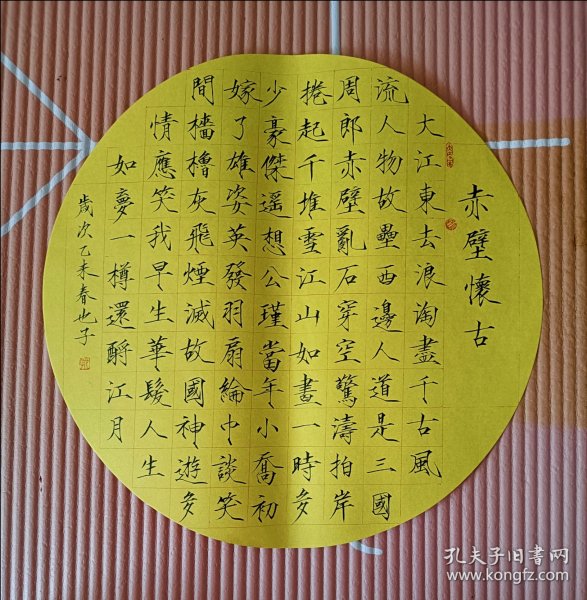 赤壁懷古
大江東去浪淘盡千古風
流人物故壘西邊人道是三國
周郎赤壁亂石穿空驚濤拍岸
捲起千堆雪江山如畫一時多
少豪傑遥想公瑾當年小喬初
嫁了雄姿英發羽扇綸巾談笑
間檣櫓灰飛煙滅故國神遊多
情應笑我早生華髮人生
如夢一樽還酹江月
歲次乙未春也子
孔夫子旧书网
www.kongfz.com